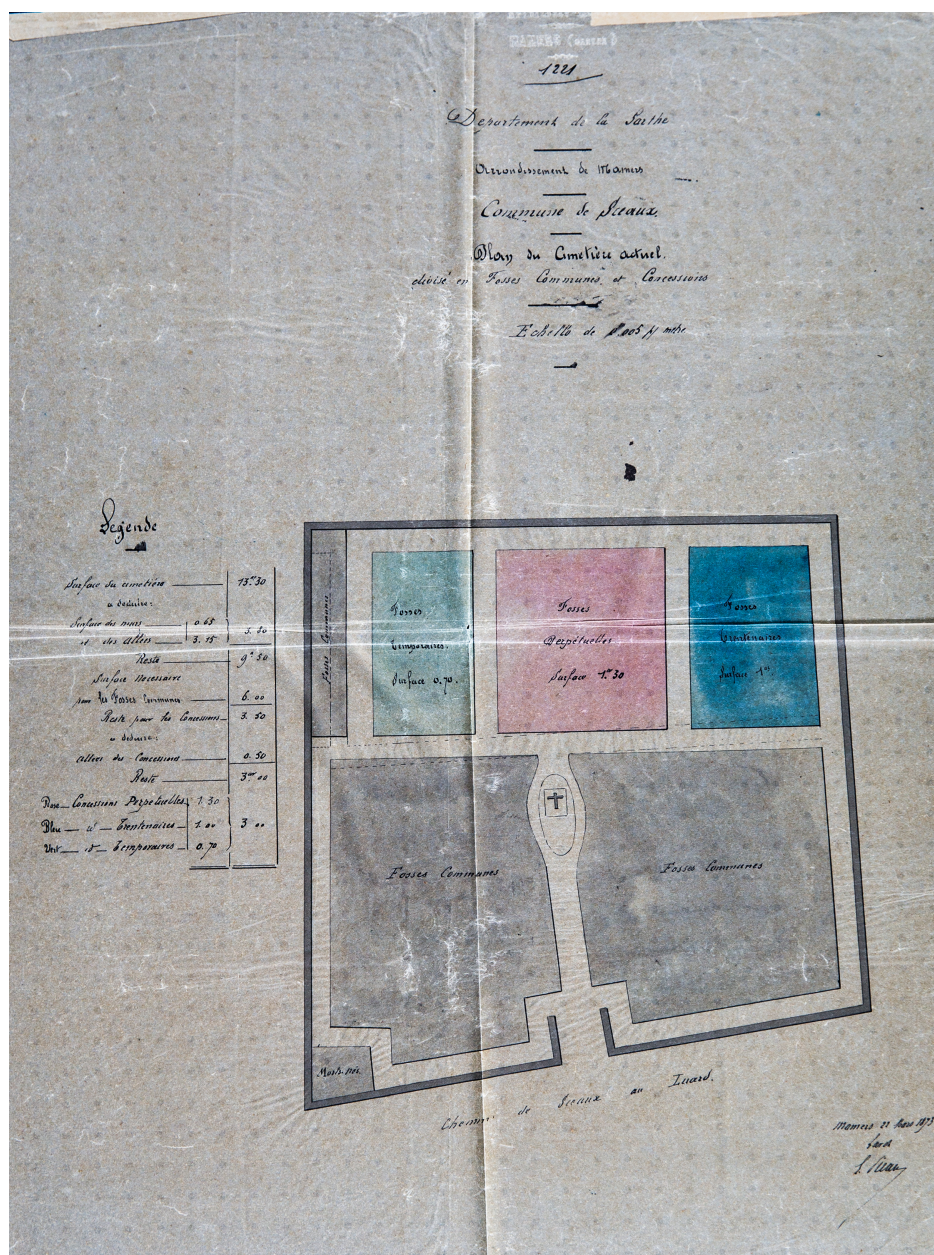 MAMERS (SARTHE)
1221
Département de la Sarthe
Arrondissement de Mamers
Commune de Sceaux.
Plan du Cimetière actuel.
divisé en Fosses Communes et Concessions
Echelle de 0.005 p/ mètre
Légende
Surface du cimetière 13.ares 30
a déduire:
Surface des murs 0.65
id des allées 3.15
3.80
Reste 9.a 50
Surface nécessaire
pour les Fosses Communes 6.00
Reste pour les Concessions 3.50
a déduire:
allées des Concessions 0.50
Reste 3.ares 00
Rose Concessions Perpétuelles 1.30
Bleu id Trentenaires 1.00
3 00
Vert id Temporaires 0.70
Fosses Communes
Fosses
Temporaires.
Surface 0.70.
Fosses
Perpétuelles
Surface 1.a 30
Fosses
Trentenaires
Surface 1.a
Fosses Communes
Fosses Communes
Morts-nés
Chemin de Sceaux au Luard.
Mamers 22 Mars 1873